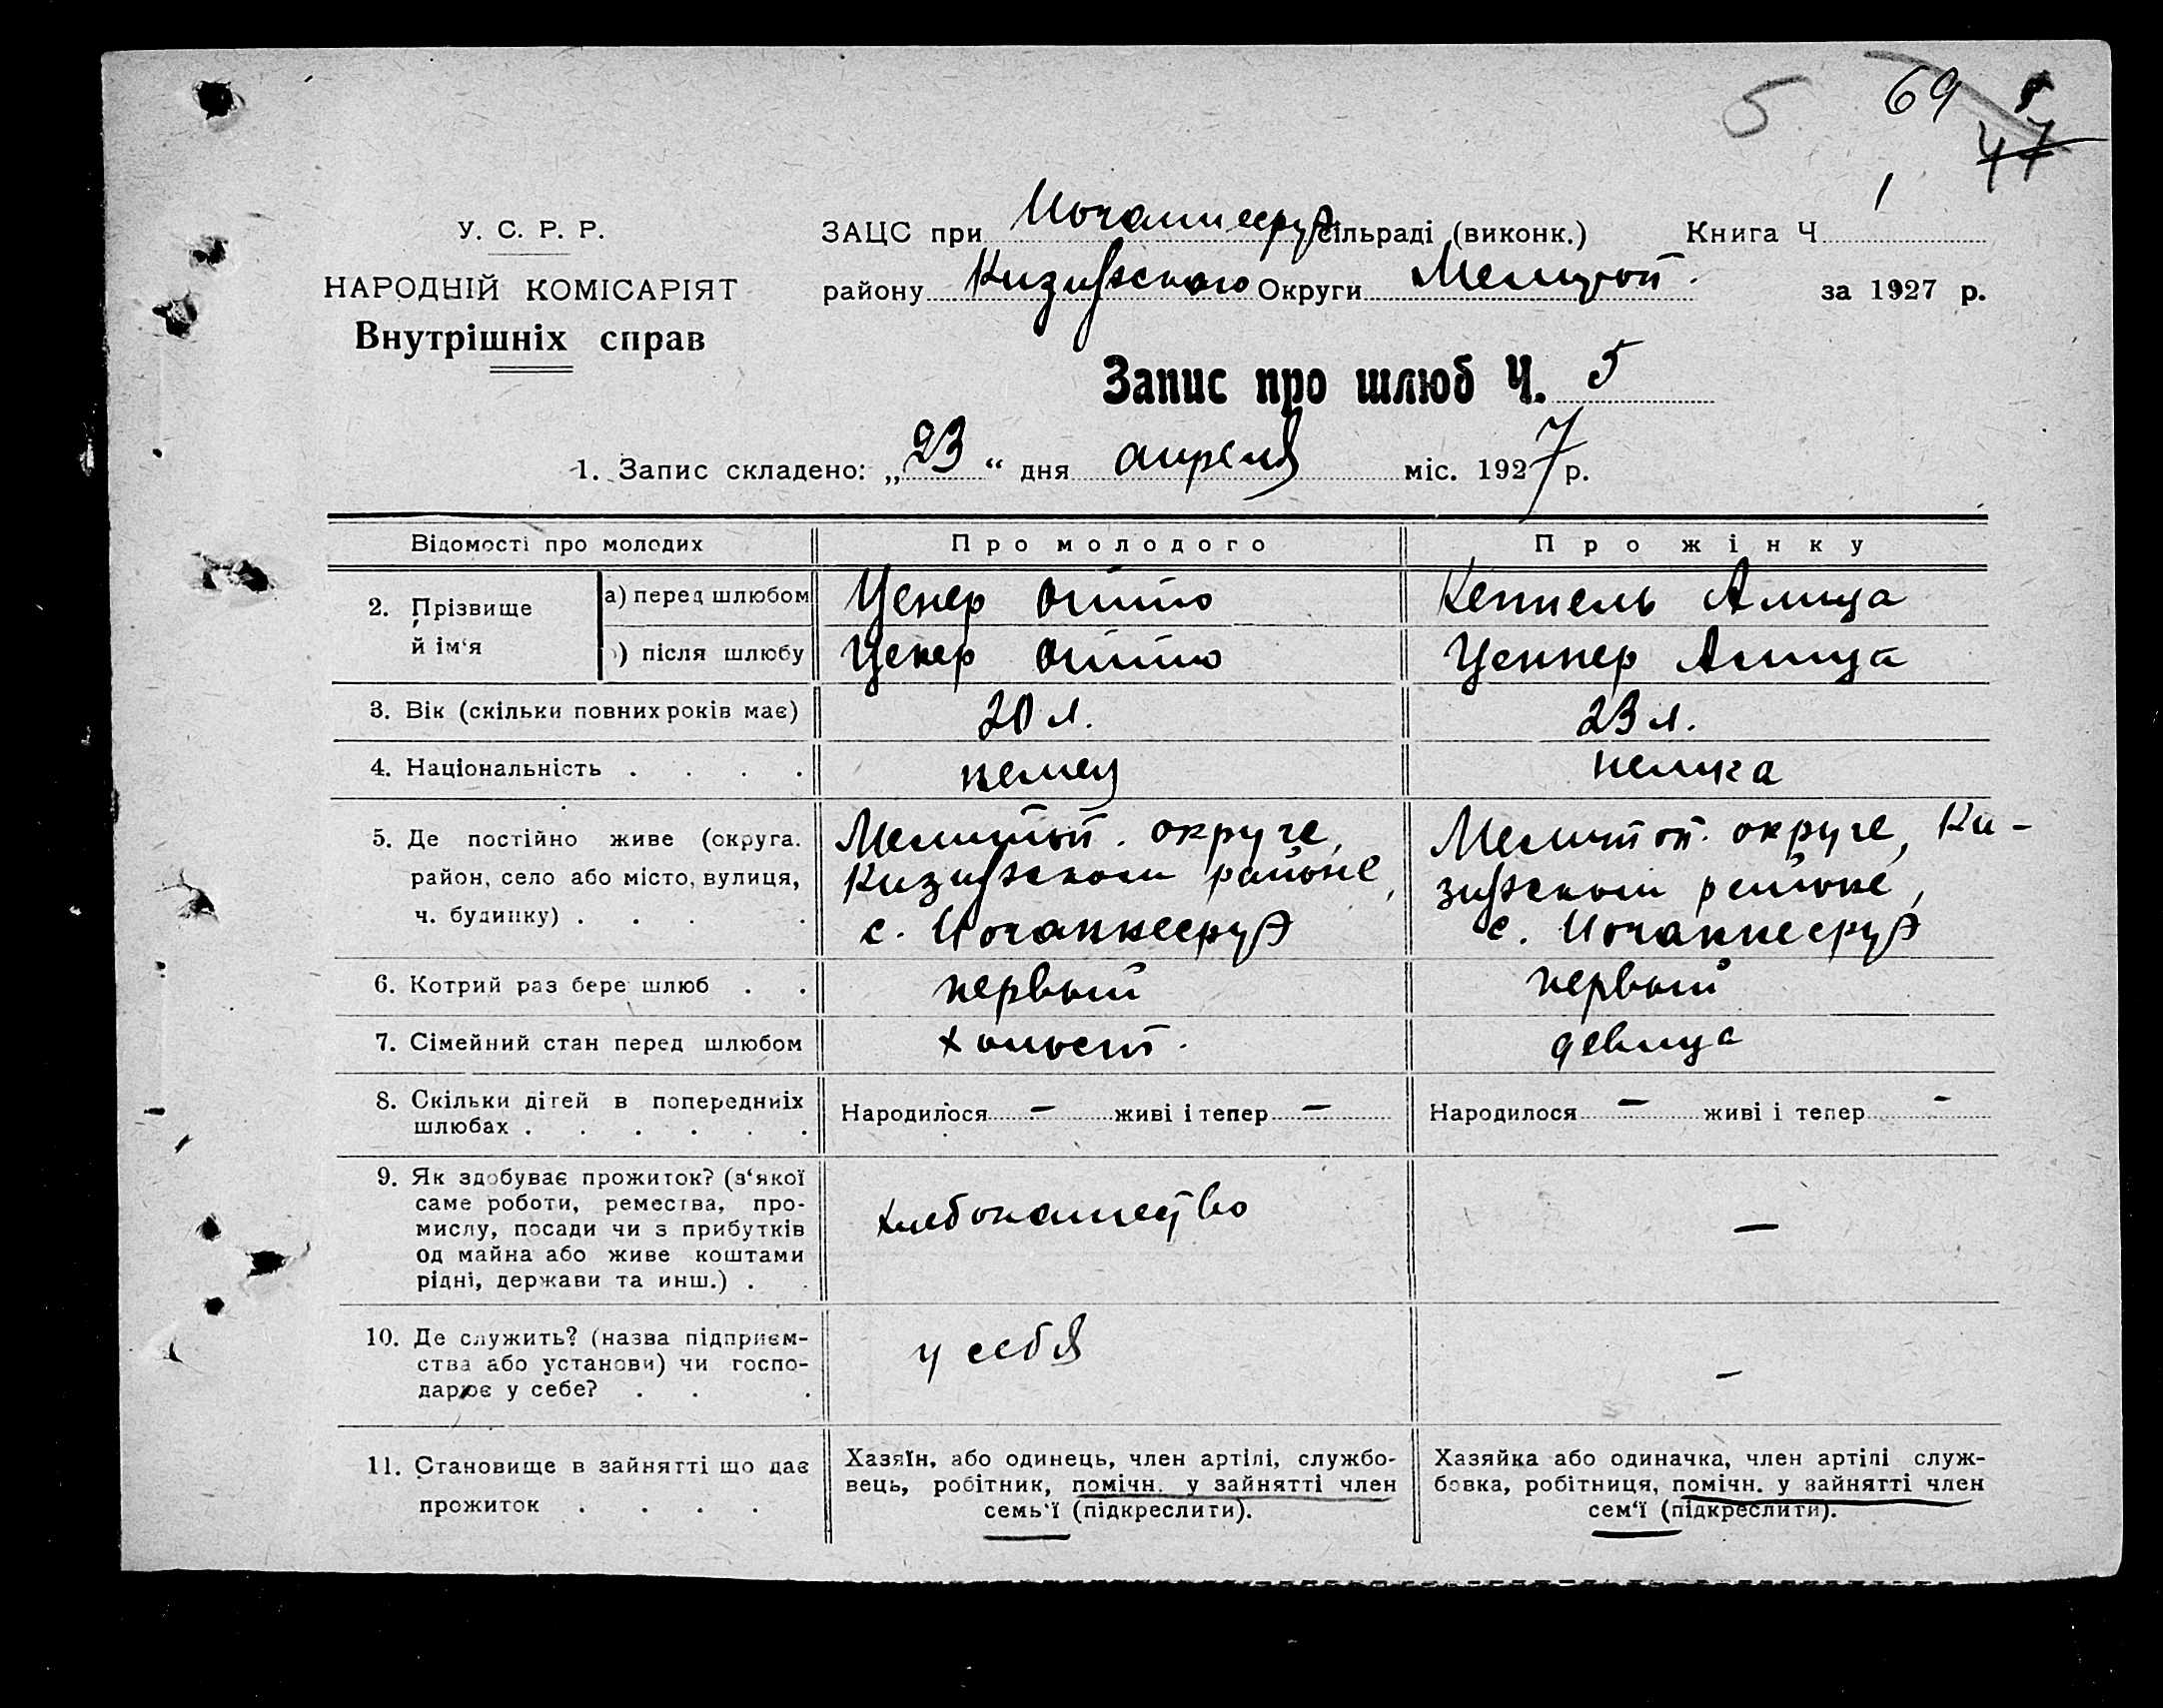 5 69
47
У. С. Р. Р.
НАРОДНІЙ КОМІСАРІЯТ
Внутрішніх справ
ЗАЦС при Иоганнесруэ сільраді (виконк.) Книга Ч 1
району Кизиярского Округи Мелитоп. за 1927 р.
Запис про шлюб Ч. 5
1. Запис складено: „23“ дня апреля міс. 1927 р.
Відомості про молодих Про молодого Про жінку
2. Прізвище й ім‘я а) перед шлюбом Ценер Отто Кеппель Алица
) після шлюбу Ценер Отто Ценнер Алица
3. Вік (скільки повних років має) 20 л. 23 л.
4. Національність . . . . немец немка
5. Де постійно живе (округа. Мелитоп. округе, Мелитоп. округе, Ки-
район, село або місто, вулиця, Кизиярском районе, зиярском районе,
ч. будинку) . . . . с. Иоганнесруэ с. Иоганнесруэ
6. Котрий раз бере шлюб . . первый первый
7. Сімейний стан перед шлюбом холост. девица
8. Скільки дітей в попередниіх Народилося — живі і тепер — Народилося — живі і тепер -
шлюбах . . . . . .
9. Як здобуває прожиток? (з‘якої
саме роботи, ремества, про-
мислу, посади чи з прибутків хлебопашество —
од майна або живе коштами
рідні, держави та инш.) . .
10. Де служить? (назва підприєм-
ства або установи) чи госпо- у себя -
дарює у себе? . . .
11. Становище в зайнятті що дає Хазяїн, або одинець, член артілі, службо- Хазяйка або одиначка, член артілі служ-
прожиток . . . . вець, робітник, помічн. у зайнятті член бовка, робітниця, помічн. у зайнятті член
семь‘ї (підкреслити). сем‘ї (підкреслити).